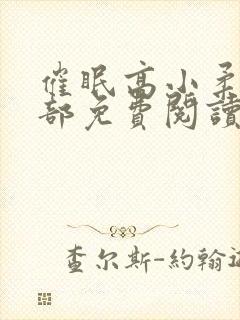 催眠高小柔
部免費閱讀
查尔斯-約翰遜